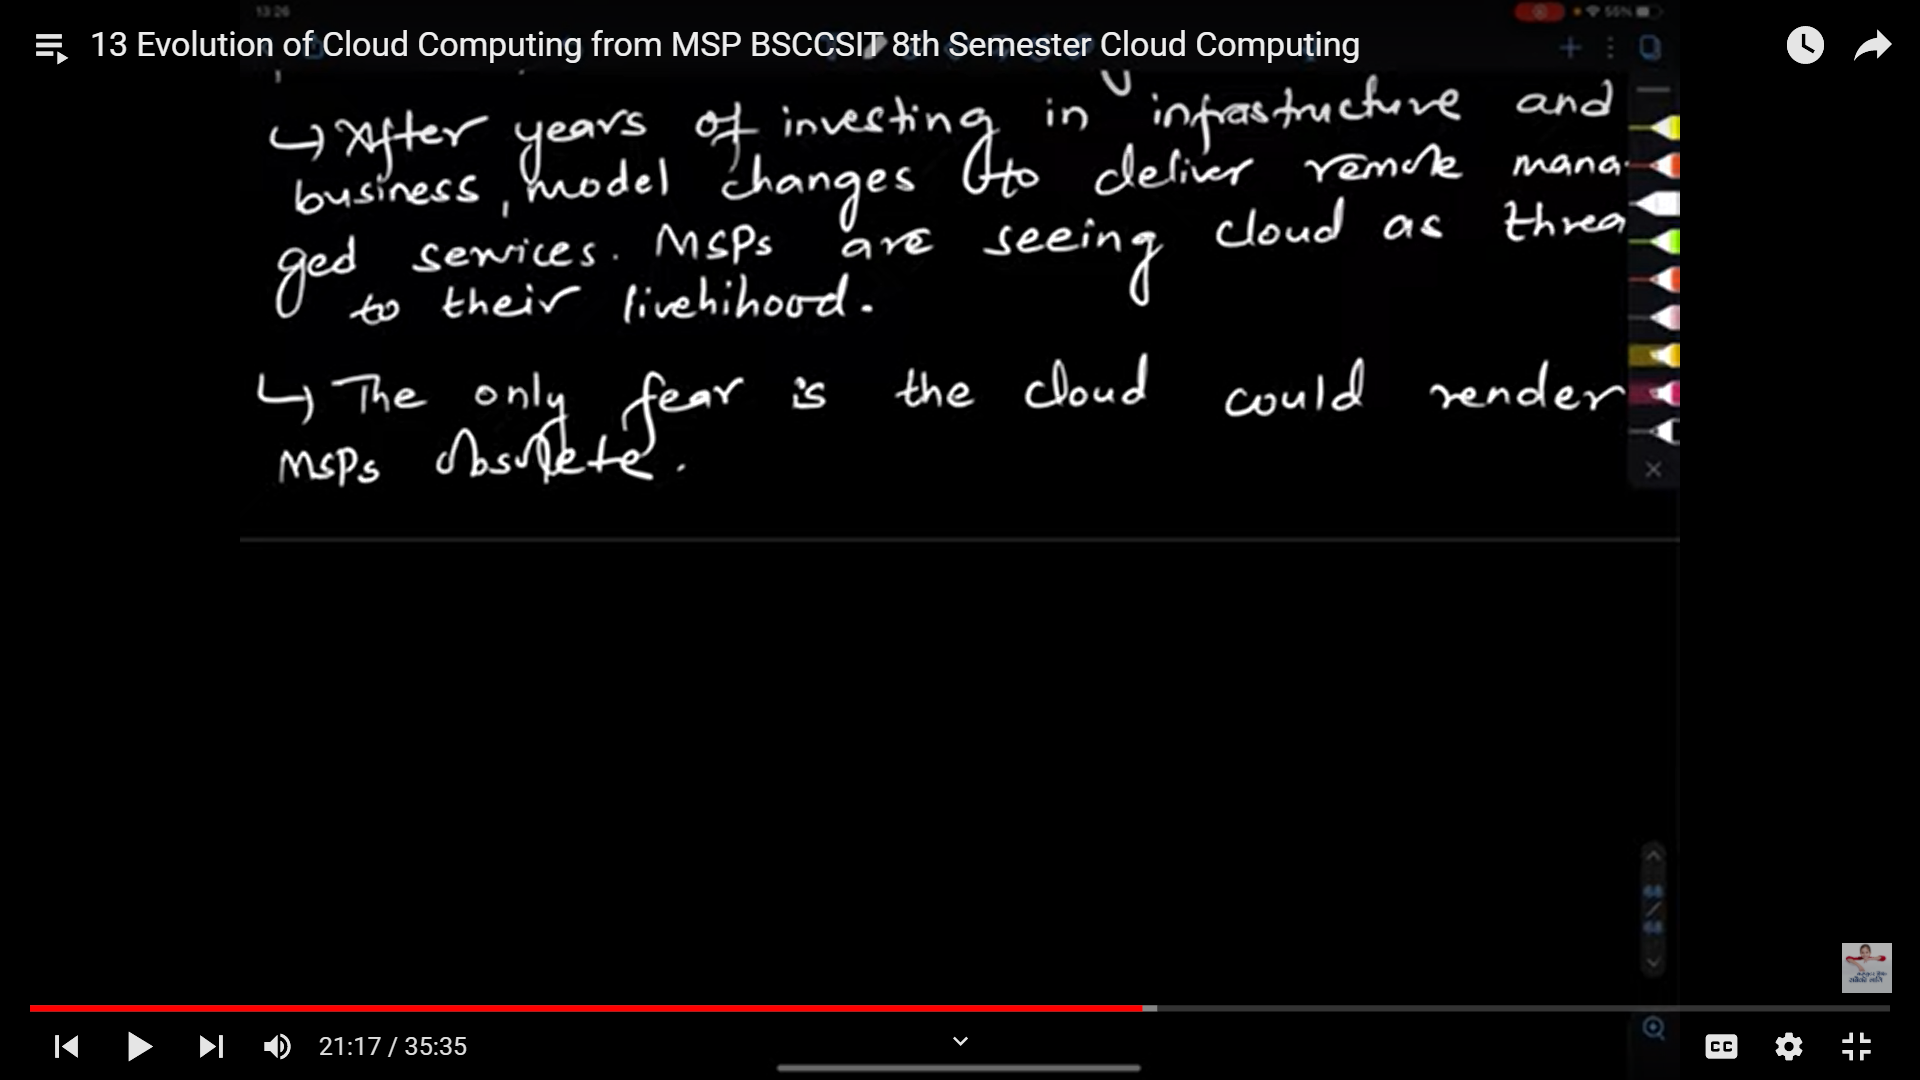 13:26
55%
13 Evolution of Cloud Computing from MSP BSCCSIT 8th Semester Cloud Computing
↳ After years of investing in infrastructure and
business, model changes to deliver remote mana-
ged services. MSPs are seeing cloud as threa
to their livehihood.
↳ The only fear is the cloud could render
MSPs obsolete.
68
/
68
21:17 / 35:35
CC